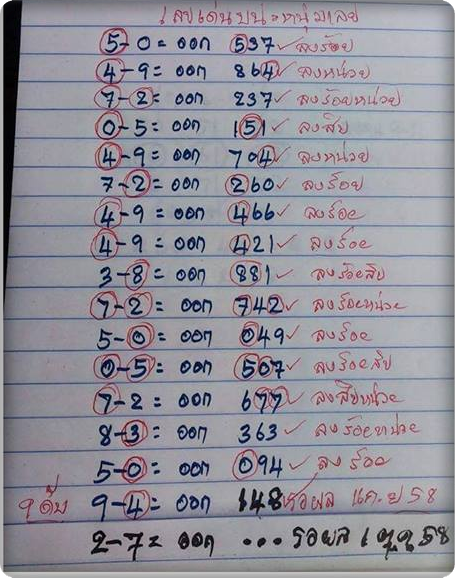 เลขเด่นบน=หนุ่มเลย
5-0= ออก 537✓ ลงร้อย
4-9= ออก 864✓ ลงหน่วย
7-2= ออก 237✓ ลงร้อยหน่วย
0-5= ออก 151✓ ลงสิบ
4-9= ออก 704✓ ลงหน่วย
7-2= ออก 260✓ ลงร้อย
4-9= ออก 466✓ ลงร้อย
4-9= ออก 421✓ ลงร้อย
3-8= ออก 881✓ ลงร้อยสิบ
7-2= ออก 742✓ ลงร้อยหน่วย
5-0= ออก 049✓ ลงร้อย
0-5= ออก 507✓ ลงร้อยสิบ
7-2= ออก 677✓ ลงสิบหน่วย
8-3= ออก 363✓ ลงร้อยหน่วย
5-0= ออก 094✓ ลงร้อย
9-4= ออก 148 58
2-7= ออก ... รอผล 1 58